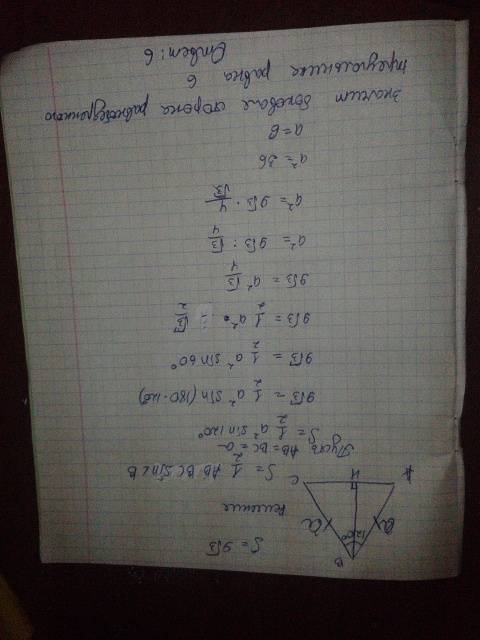 S = 9√3
Решение
B
120°
a
a
A
H
C
S = 1/2 AB·BC sin∠B
Пусть AB = BC = a
S = 1/2 a² sin 120°
9√3 = 1/2 a² sin (180-120)
9√3 = 1/2 a² sin 60°
9√3 = 1/2 a² · √3/2
9√3 = a² √3/4
a² = 9√3 : √3/4
a² = 9√3 · 4/√3
a² = 36
a = 6
значит боковая сторона равнобедренного
треугольника равна 6
Ответ: 6